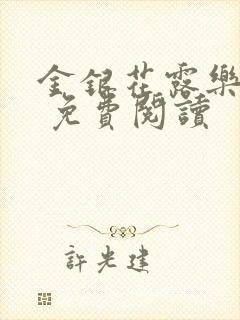 金銀花露樂
免費閱讀
許光建